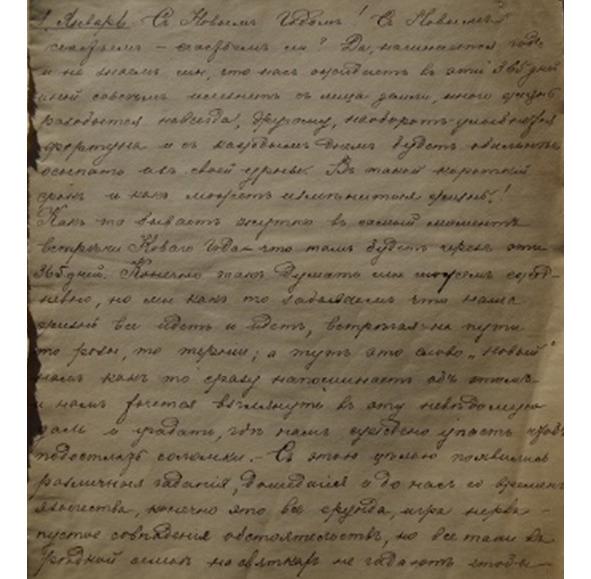 1 Январь. Съ Новымъ Годомъ! Съ Новымъ
счастьемъ – счастьемъ ли? Да, начинается годъ
и не знаемъ мы, что насъ ожидаетъ въ эти 365 дней
иной совсѣмъ исчезнетъ съ лица земли, много жизнь
разобьется навсегда, другому, наоборотъ улыбнется
фортуна и съ каждымъ днемъ будетъ обильнѣе
осыпать изъ своей урны. Въ такой короткій
срокъ и какъ можетъ измѣниться жизнь!
Какъ то бываетъ жутко въ самый моментъ
встрѣчи Новаго Года – что тамъ будетъ черезъ эти
365 дней. Конечно такъ думать мы можемъ ежед-
невно, но мы какъ то забываемъ что наша
жизнь все идетъ и идетъ, встрѣчая на пути
то розы, то терніи; а тутъ это слово „Новый"
намъ какъ то сразу напоминаетъ объ этомъ
и намъ хочется взглянуть въ эту невѣдомую
даль и угадать, гдѣ намъ суждено упасть чтобъ
подостлать соломки. – Съ этою цѣлью появились
различныя гаданія, дошедшія и до насъ со временъ
язычества, конечно это все ерунда, игра нервъ –
пустое совпаденія обстоятельствъ, но все таки въ
рѣдкой семьѣ на святкахъ не гадаютъ чтобы –